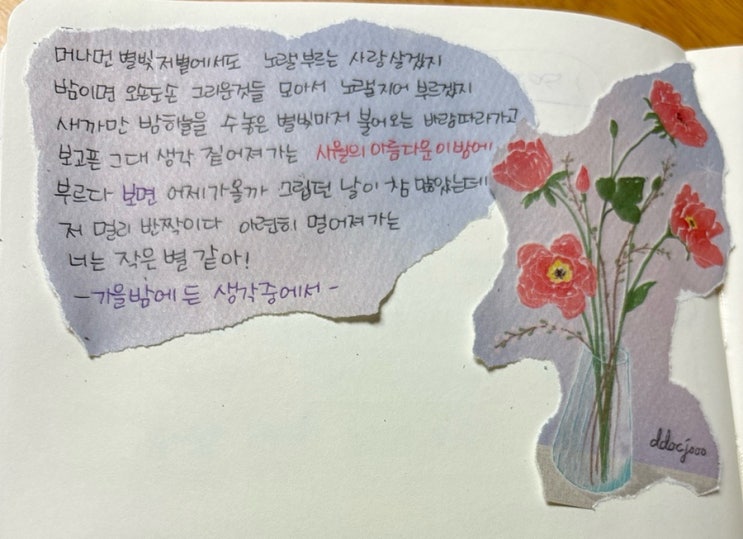 머나먼 별빛 저별에서도 노랠 부르는 사랑 살겠지
밤이면 오손도손 그리운것들 모아서 노랠지어 부르겠지
새까만 밤하늘을 수놓은 별빛마저 불어오는 바람따라가고
보고픈 그대 생각 짙어져가는 사월의 아름다운 이밤에
부르다 보면 어제가올까 그립던 날이 참 많았는데
저 멀리 반짝이다 아련히 멀어져가는
너는 작은 별 같아!
-가을밤에 든 생각중에서-
ddocjooo